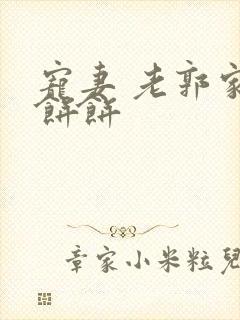 寵妻 老郭家
餅餅
章家小米粒兒